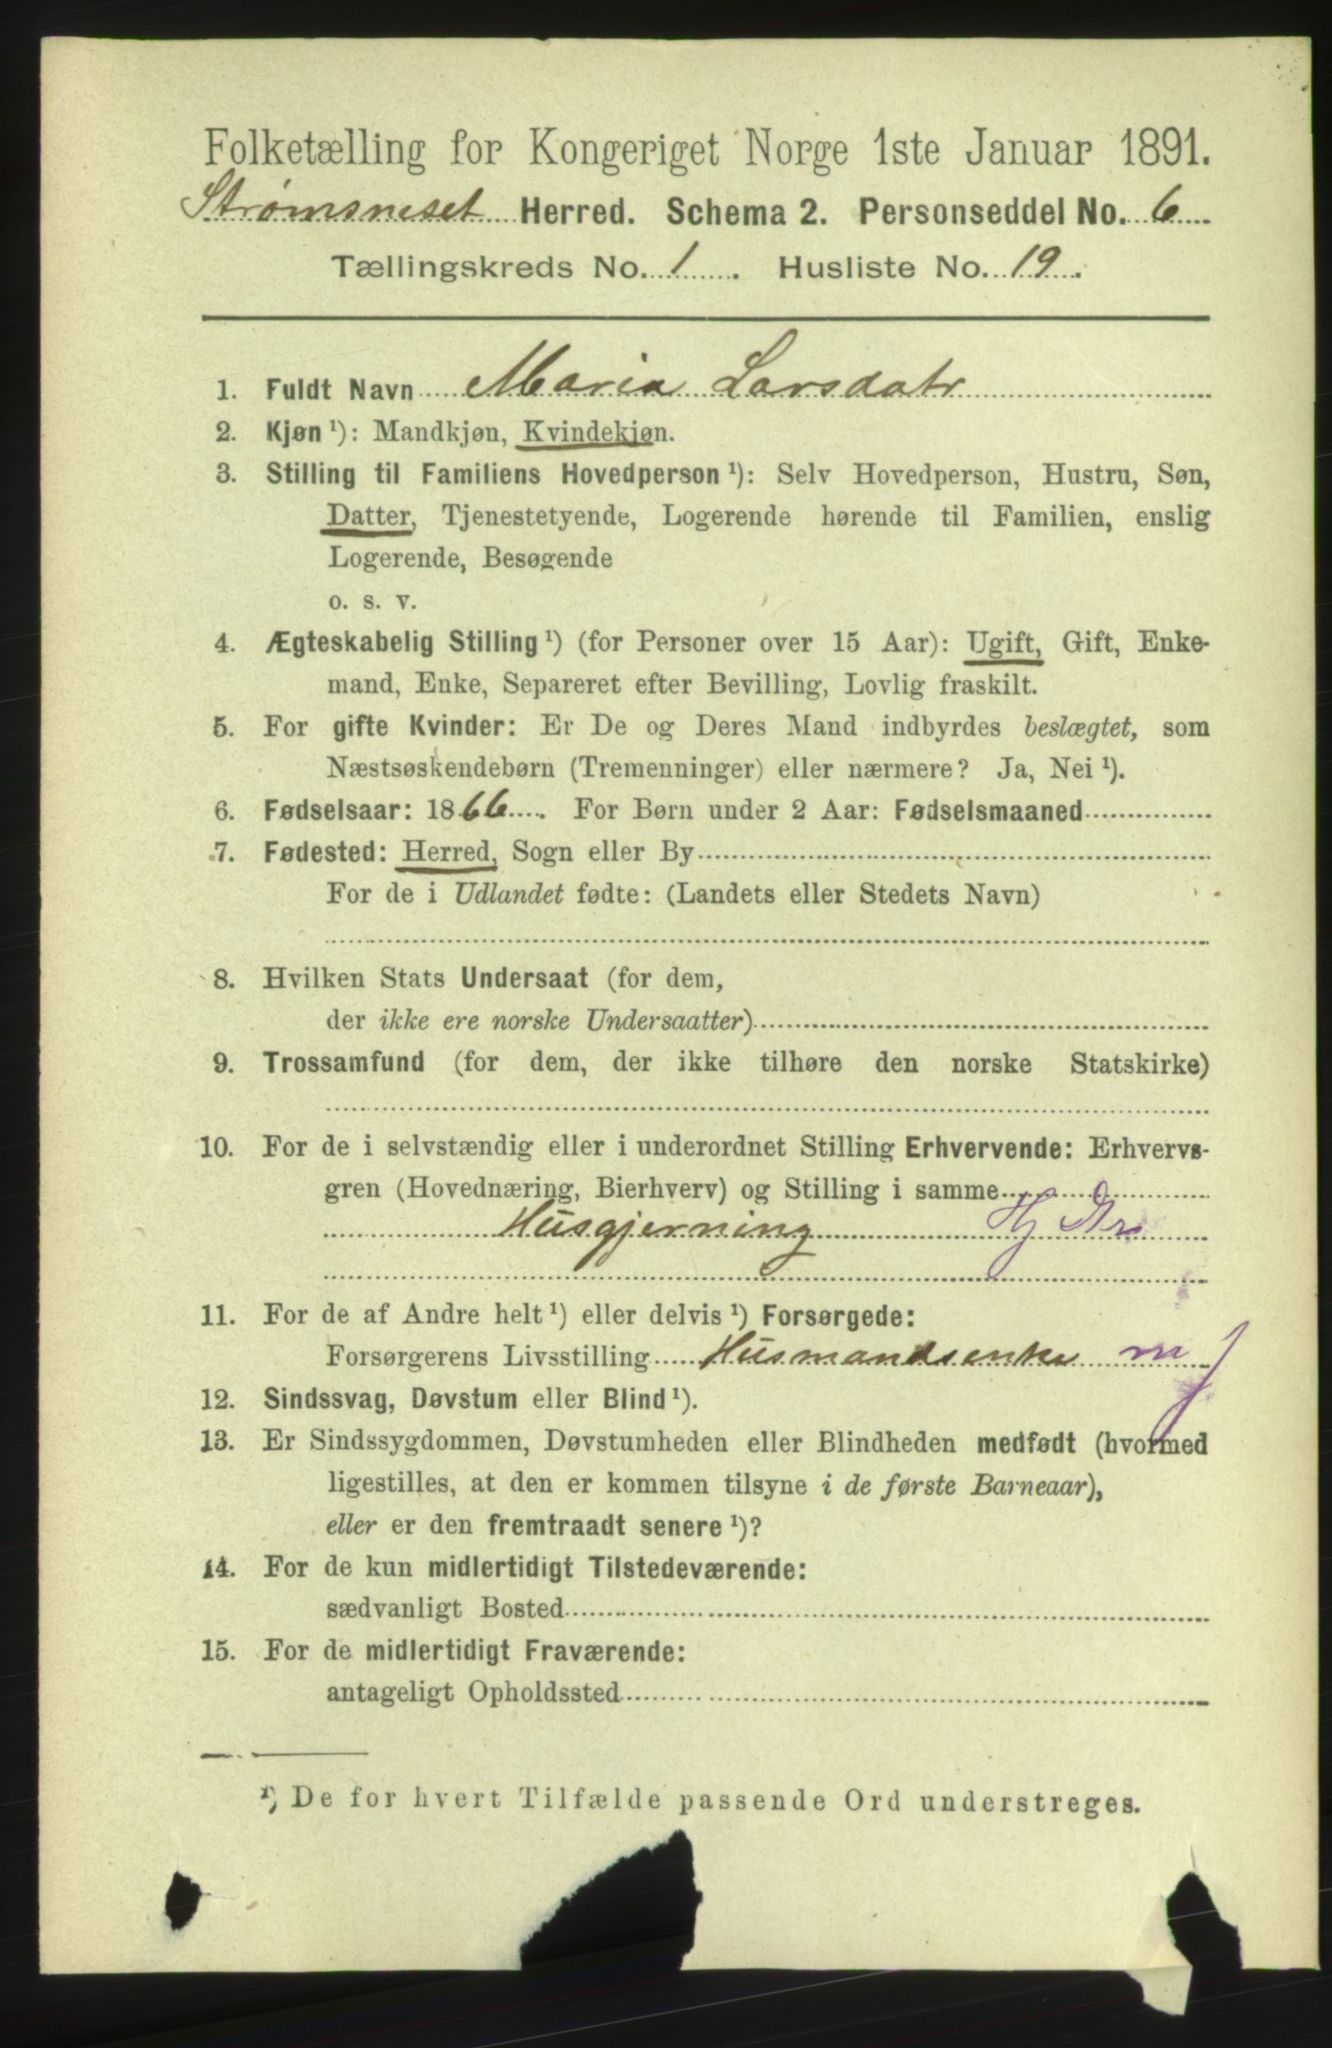 Folketælling for Kongeriget Norge 1ste Januar 1891.
Strømsneset Herred. Schema 2. Personseddel No. 6
Tællingskreds No. 1. Husliste No. 19.
1. Fuldt Navn Maria Larsdatr
2. Kjøn ¹): Mandkjøn, Kvindekjøn.
3. Stilling til Familiens Hovedperson ¹): Selv Hovedperson, Hustru, Søn,
Datter, Tjenestetyende, Logerende hørende til Familien, enslig
Logerende, Besøgende
o. s. v.
4. Ægteskabelig Stilling ¹) (for Personer over 15 Aar): Ugift, Gift, Enke-
mand, Enke, Separeret efter Bevilling, Lovlig fraskilt.
5. For gifte Kvinder: Er De og Deres Mand indbyrdes beslægtet, som
Næstsøskendebørn (Tremenninger) eller nærmere? Ja, Nei ¹).
6. Fødselsaar: 1866. For Børn under 2 Aar: Fødselsmaaned
7. Fødested: Herred, Sogn eller By
For de i Udlandet fødte: (Landets eller Stedets Navn)
8. Hvilken Stats Undersaat (for dem,
der ikke ere norske Undersaatter)
9. Trossamfund (for dem, der ikke tilhøre den norske Statskirke)
10. For de i selvstændig eller i underordnet Stilling Erhvervende: Erhvervs-
gren (Hovednæring, Bierhverv) og Stilling i samme
Husgjerning Hj
11. For de af Andre helt ¹) eller delvis ¹) Forsørgede:
Forsørgerens Livsstilling Husmandsenke
12. Sindssvag, Døvstum eller Blind ¹).
13. Er Sindssygdommen, Døvstumheden eller Blindheden medfødt (hvormed
ligestilles, at den er kommen tilsyne i de første Barneaar),
eller er den fremtraadt senere ¹)?
14. For de kun midlertidigt Tilstedeværende:
sædvanligt Bosted
15. For de midlertidigt Fraværende:
antageligt Opholdssted
¹) De for hvert Tilfælde passende Ord understreges.